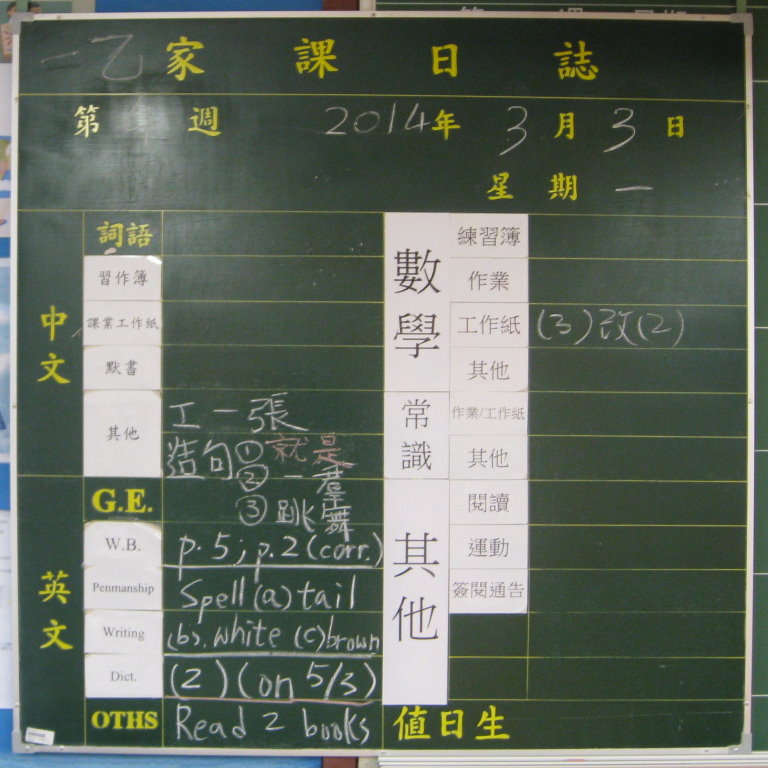 一乙家課日誌
第 週 2014年3月3日
星期一
中文
詞語
習作簿
課業工作紙
默書
其他 工一張
造句①就是
②一羣
③跳舞
英文
G.E.
W.B. p.5; p.2 (corr.)
Penmanship Spell (a) tail
Writing (b). white (c) brown
Dict. (2) (on 5/3)
OTHS Read 2 books
數學
練習簿
作業
工作紙 (3) 改(2)
其他
常識
作業/工作紙
其他
其他
閱讀
運動
簽閱通告
值日生